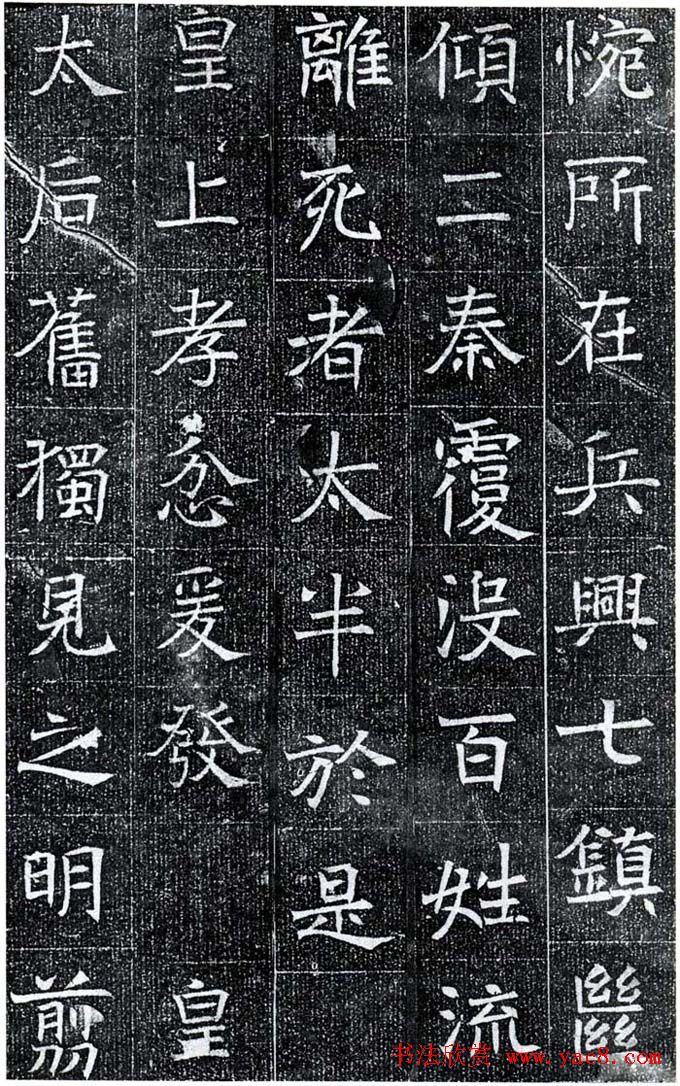 惋所在兵興七鎮㡭
傾二秦覆沒百姓流
離死者太半於是
皇上孝忿爰發 皇
太后奮獨見之明翦
书法欣赏 www.yac8.com